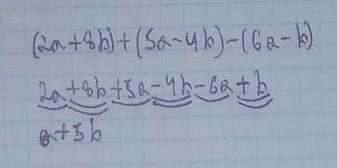 (2a+8b)+(5a-4b)-(6a-b)
2a+8b+5a-4b-6a+b
a+5b